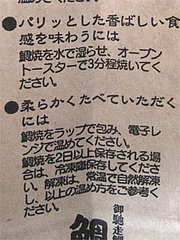 ●パリッとした香ばしい食
感を味わうには
鯛焼を水で湿らせ、オーブン
トースターで3分程焼いてく
ださい。
●柔らかくたべていただく
には
鯛焼をラップで包み、電子レ
ンジで温めてください。
鯛焼を2日以上保存される場
合は、冷凍庫保存してくださ
い。解凍は、常温で自然解凍
し、以上の温め方をご参考く
ださい。
御馳走鯛
鯛